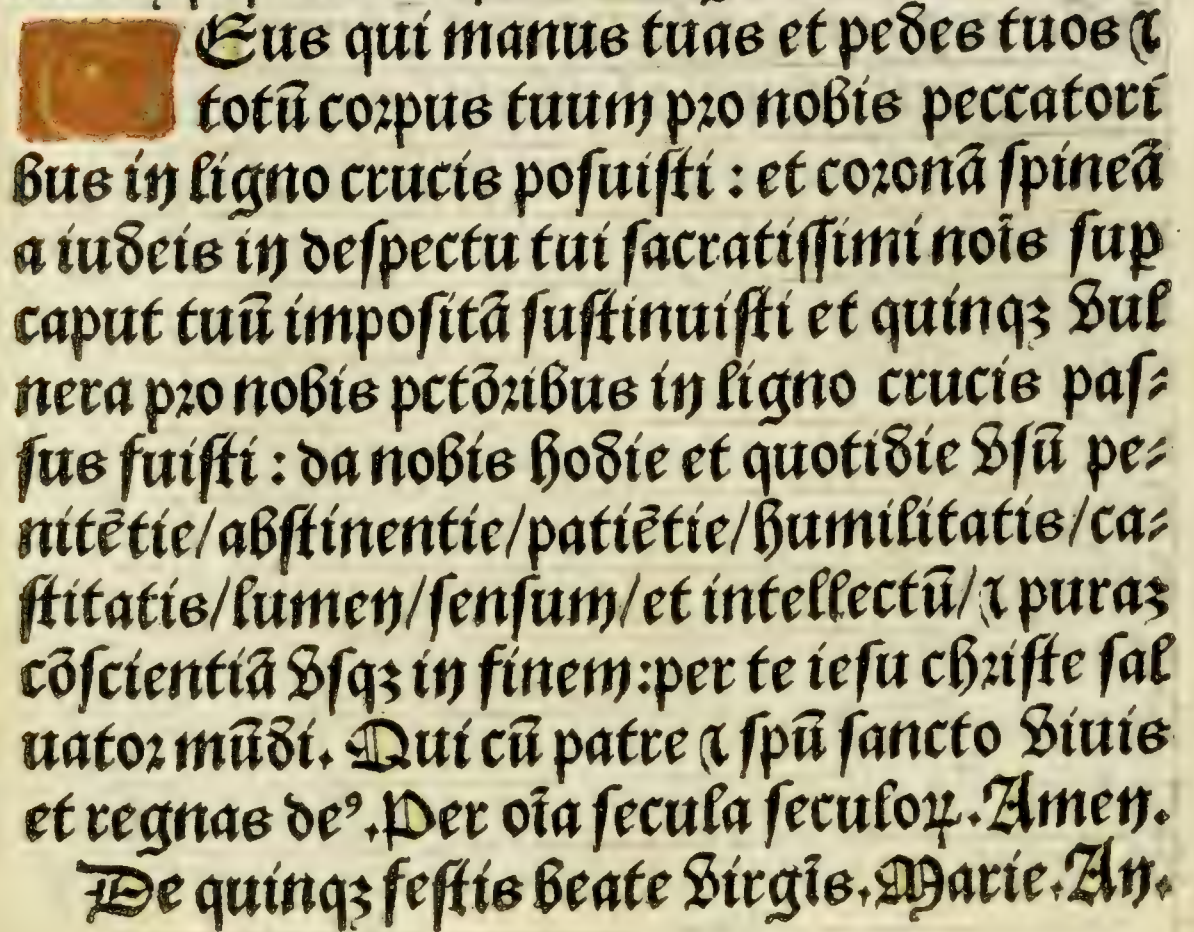 Eus qui manus tuas et pedes tuos ⁊
totū corpus tuum pro nobis peccatori
bus in ligno crucis poſuiſti : et coronā ſpineā
a iudeis in deſpectu tui ſacratiſſimi noīs ſuꝑ
caput tuū impoſitā ſuſtinuiſti et quinqꝫ vul
nera pro nobis pctōribus in ligno crucis paſ⸗
ſus fuiſti : da nobis hodie et quotidie vſū pe⸗
nitētie/abſtinentie/patiētie/humilitatis/ca⸗
ſtitatis/lumen/ſenſum/et intellectū/⁊ puraꝫ
cōſcientiā vſqꝫ in finem:per te ieſu chriſte ſal
uator mūdi. Qui cū patre ⁊ ſpū ſancto viuis
et regnas deꝰ. Per oīa ſecula ſeculoꝝ. Amen.
De quinqꝫ feſtis beate virgīs. Marie. An.